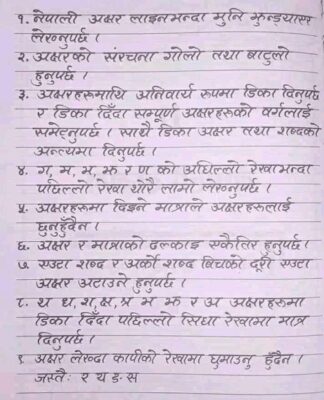 १. नेपाली अक्षर लाइनभन्दा मुनि झुन्ड्याएर
लेख्नुपर्छ ।
२. अक्षरको संरचना गोलो तथा बाटुलो
हुनुपर्छ ।
३. अक्षरहरूमाथि अनिवार्य रुपमा डिका दिनुपर्छ
र डिका दिँदा सम्पूर्ण अक्षरहरूको वर्गलाई
समेट्नुपर्छ । साथै डिका अक्षर तथा शब्दको
अन्त्यमा दिनुपर्छ ।
४. ग, म, भ, झ र ण को अघिल्लो रेखाभन्दा
पछिल्लो रेखा थोरै लामो लेख्नुपर्छ ।
५. अक्षरहरूमा दिइने मात्राले अक्षरहरूलाई
छुनुहुँदैन ।
६. अक्षर र मात्राको ढल्काइ एकैतिर हुनुपर्छ ।
७ एउटा शब्द र अर्को शब्द बिचको दूरी एउटा
अक्षर अटाउने हुनुपर्छ ।
८. थ ध, श, क्ष, श्र भ झ र अ अक्षरहरूमा
डिका दिँदा पछिल्लो सिधा रेखामा मात्र
दिनुपर्छ ।
९ अक्षर लेख्दा कापीको रेखामा घुमाउनु हुँदैन ।
जस्तैः र य ङ स